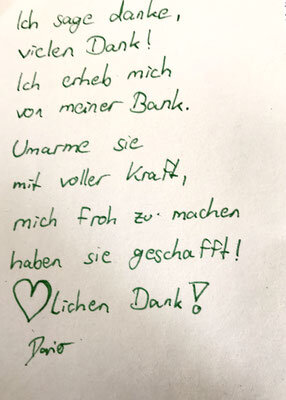 Ich sage danke,
vielen Dank!
Ich erheb mich
von meiner Bank.
Umarme sie
mit voller Kraft,
mich froh zu machen
haben sie geschafft!
♡lichen Dank!
Dario